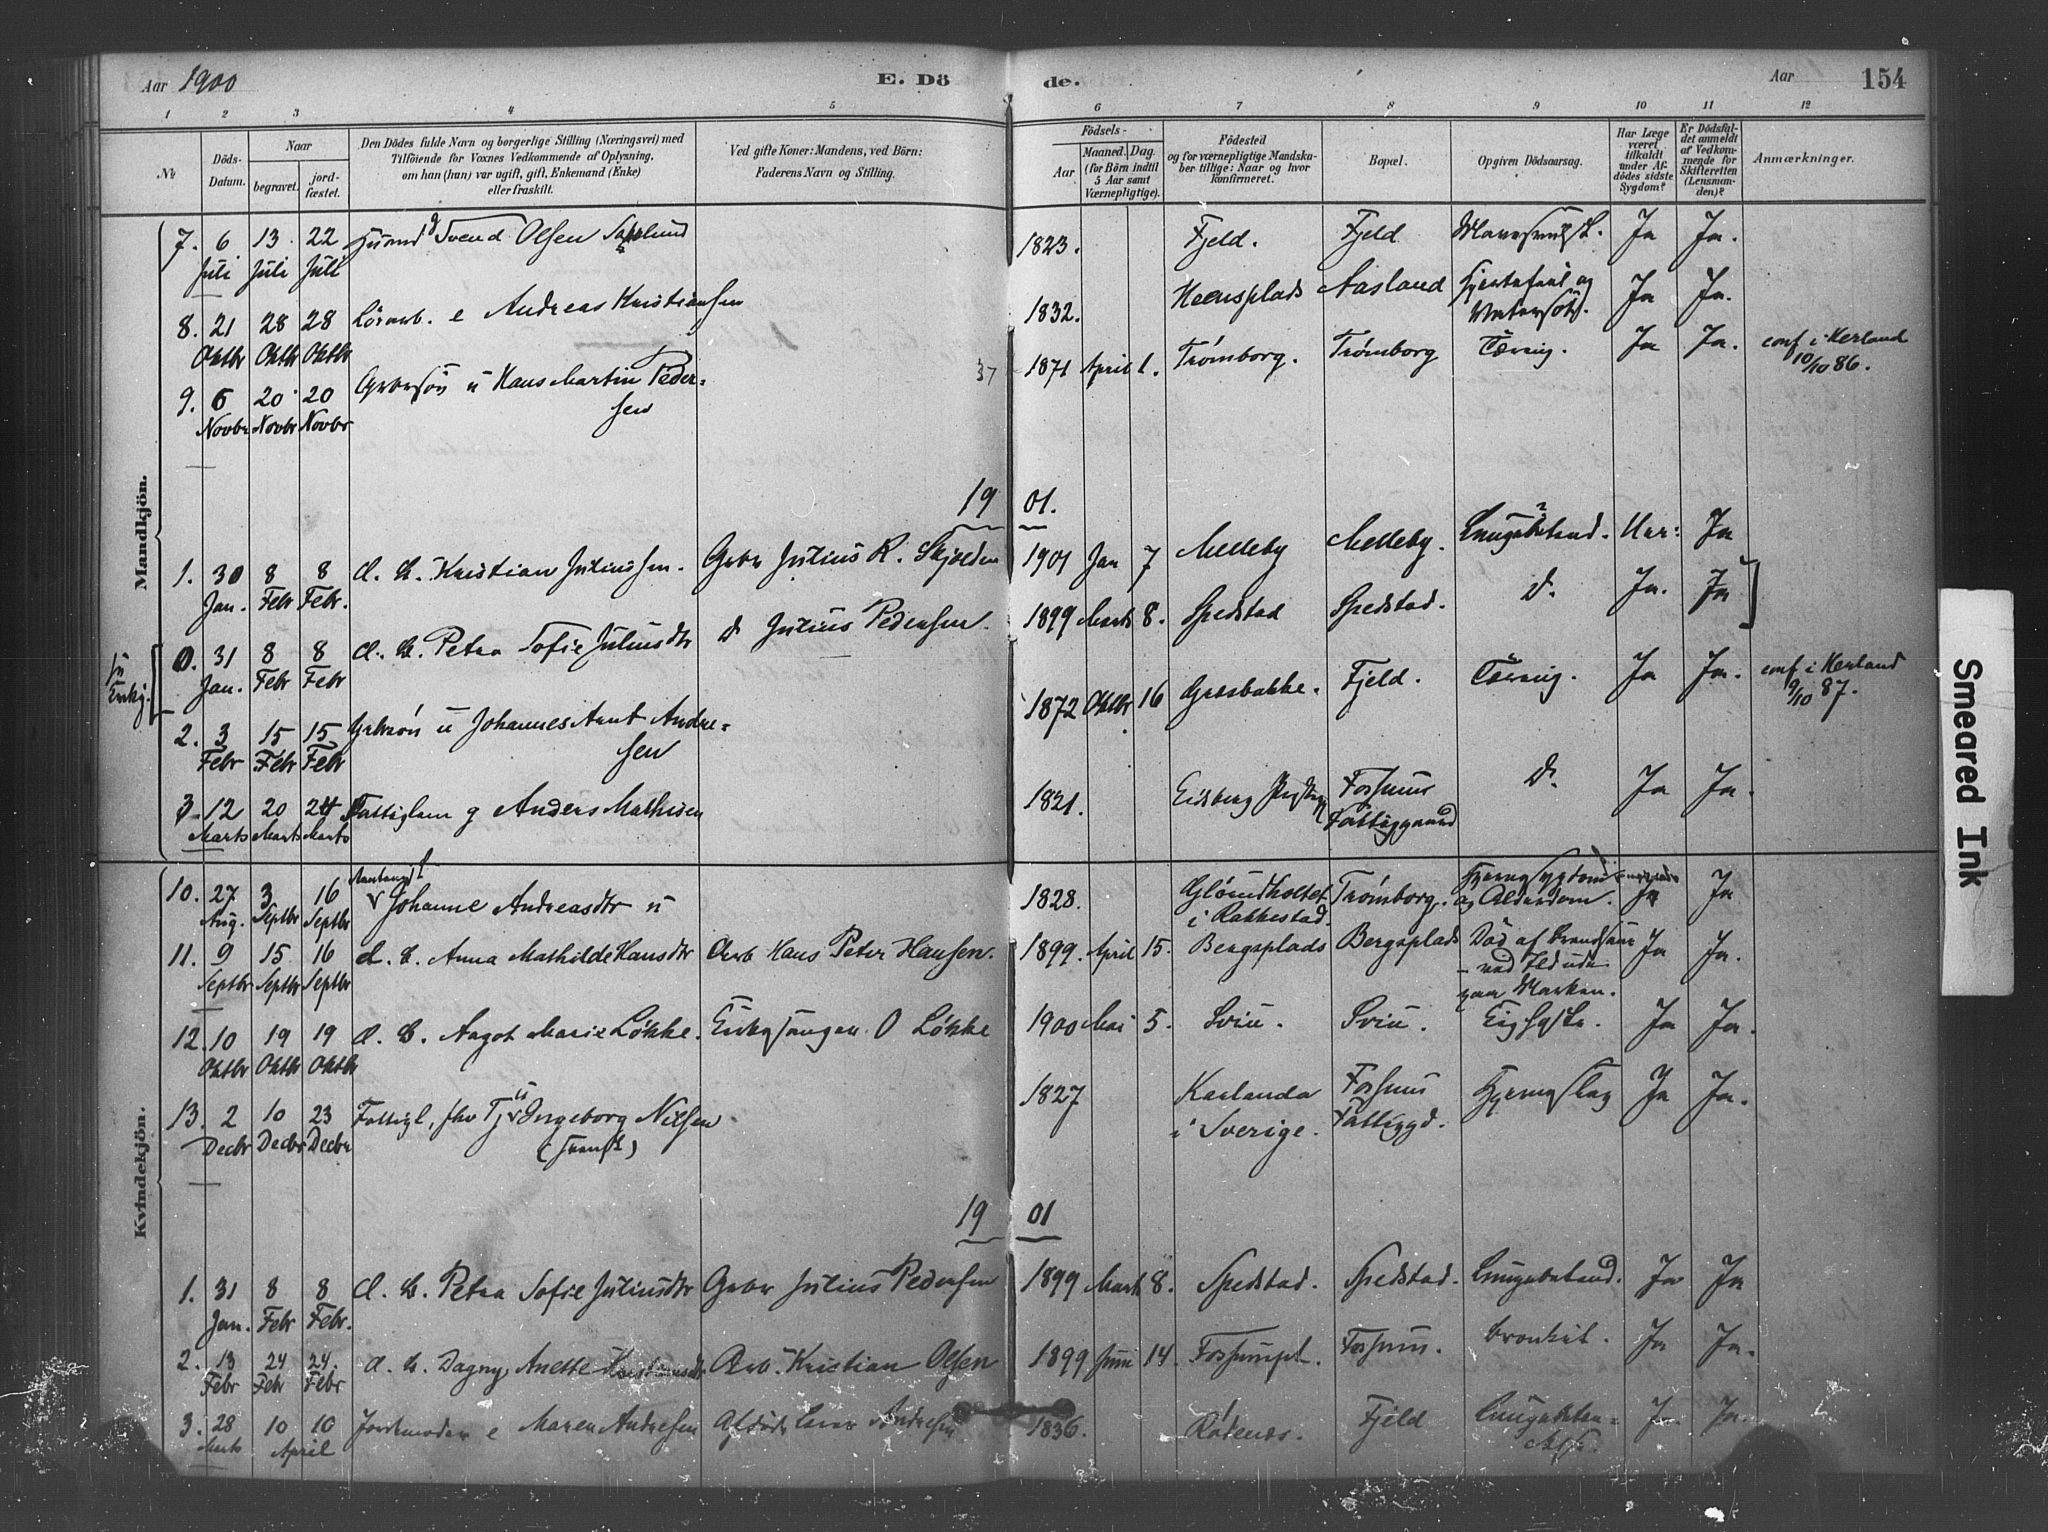 Aar 1900
E. Dö
de.
Aar
154
1 2 3 4 5 6 7 8 9 10 11 12
№
Döds-
Datum.
Naar
begravet.
jord-
fæstet.
Den Dödes fulde Navn og borgerlige Stilling (Næringsvei) med
Tilföiende for Voxnes Vedkommende af Oplysning,
om han (hun) var ugift, gift, Enkemand (Enke)
eller fraskilt.
Ved gifte Koner: Mandens, ved Börn:
Faderens Navn og Stilling.
Födsels-
Aar
Maaned. Dag.
(for Börn indtil
5 Aar samt
Værnepligtige).
Födested
og for værnepligtige Mandska-
ber tillige: Naar og hvor
konfirmeret.
Bopæl.
Opgiven Dödsaarsag.
Har Læge
været
tilkaldt
under Af-
dödes sidste
Sygdom?
Er Dödsfal-
det anmeldt
af Vedkom-
mende for
Skifteretten
(Lensman-
den)?
Anmærkninger.
Mandkjön.
7. 6 Juli 13 Juli 22 Juli Svend Olsen 1823. Fjeld. Fjeld Ja Ja.
8. 21 Oktbr 28 Oktbr 28 Oktbr e Andreas Kristiansen 1832. Aasland Ja Ja.
9. 6 Novbr 20 Novbr 20 Novbr u Hans Martin Peder=
sen
37 1871 April 1. Trömborg. Trömborg Tæring. Ja Ja. conf i Herland
10/10 86.
1901.
1. 30 Jan. 8 Febr 8 Febr. d. B. Kristian Juliussen. Gbr Julius R. Skjolden 1901 Jan 7 Melleby Melleby. Lungebetænd. Ja
0. 31 Jan. 8 Febr 8 Febr d. B. Petra Sofie Juliusdtr D Julius Pedersen. 1899 Marts 8. Spedstad Spedstad. D. Ja. Ja
2. 3 Febr 15 Febr 15 Febr u Johannes Arnt Andre=
sen
1872 Oktbr 16 Fjeld. Tæring. Ja Ja. conf i Herland
9/10 87.
3. 12 Marts 20 Marts 24 Marts Fattiglem g Anders Mathisen 1821. Eidsberg Fossum
Fattiggaard
D. Ja Ja.
Kvindekjön.
10. 27 Aug. 3 Septbr 16 Septbr Johanne Andreasdtr u 1828.
i Rakkestad.
Trömborg. Hjernesygdom
og Alderdom.
Ja Ja
11. 9 Septbr 15 Septbr 16 Septbr d. B. Anna Mathilde Hansdtr Arb Hans Peter Hansen. 1899. April 15. Bergsplads Bergsplads Död af Brandsaar
Ja Ja.
12. 10 Oktbr 19 Oktbr 19 Oktbr d. B. Aagot Marie Løkke. Kirkesanger O Løkke 1900 Mai 5. Ja Ja.
13. 2 Decbr 10 Decbr 23 Decbr Fattigl, Ingeborg Nilsen
(svensk)
1827 Karlanda
i Sverige.
Fossum
Fattiggd.
Hjerneslag Ja Ja.
1901
1. 31 Jan. 8 Febr 8 Febr. d. B. Petra Sofie Juliusdtr Gbr Julius Pedersen 1899 Marts 8. Spedstad. Spedstad. Lungebetænd. Ja Ja
2. 13 Febr 24 Febr 24. Febr d. B. Dagny Anette Kristiansdtr Arb. Kristian Olsen 1899 Juni 14. Fossumpl. Fossum. bronkit. Ja Ja.
3. 28 Marts 10 10 April Jordemoder e Maren Andresen Andresen 1836. Rödenæs. Fjeld Ja Ja.
Smeared Ink